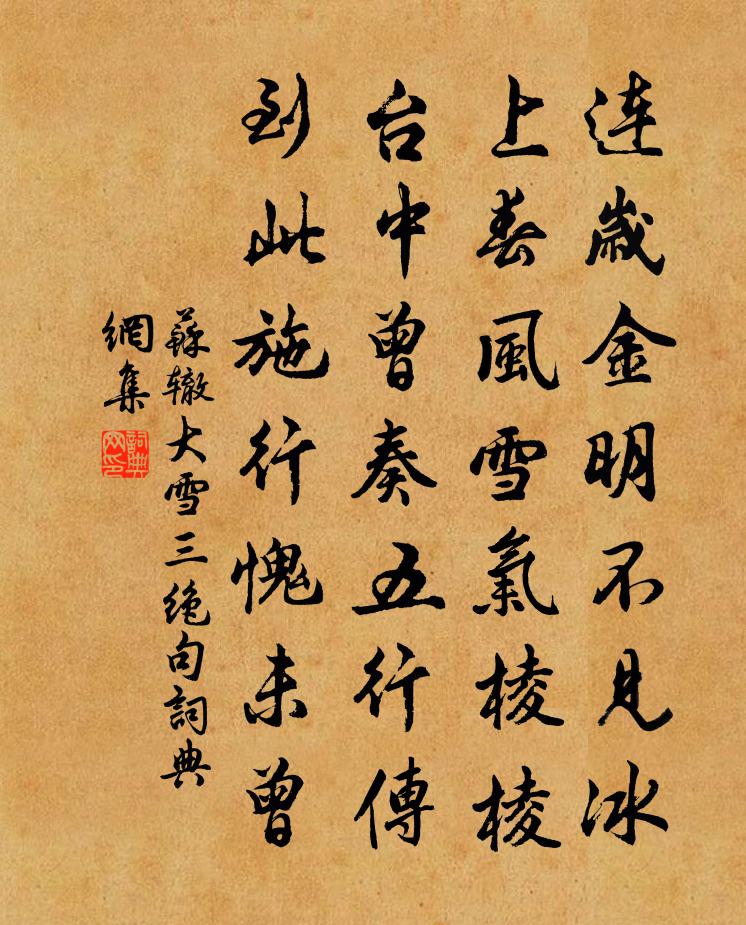 连歲金明不見冰
上春風雪氣棱棱
台中曾奏五行傳
到此施行愧未曾
蘇辙大雪三绝句詞典
網集
詞典網印